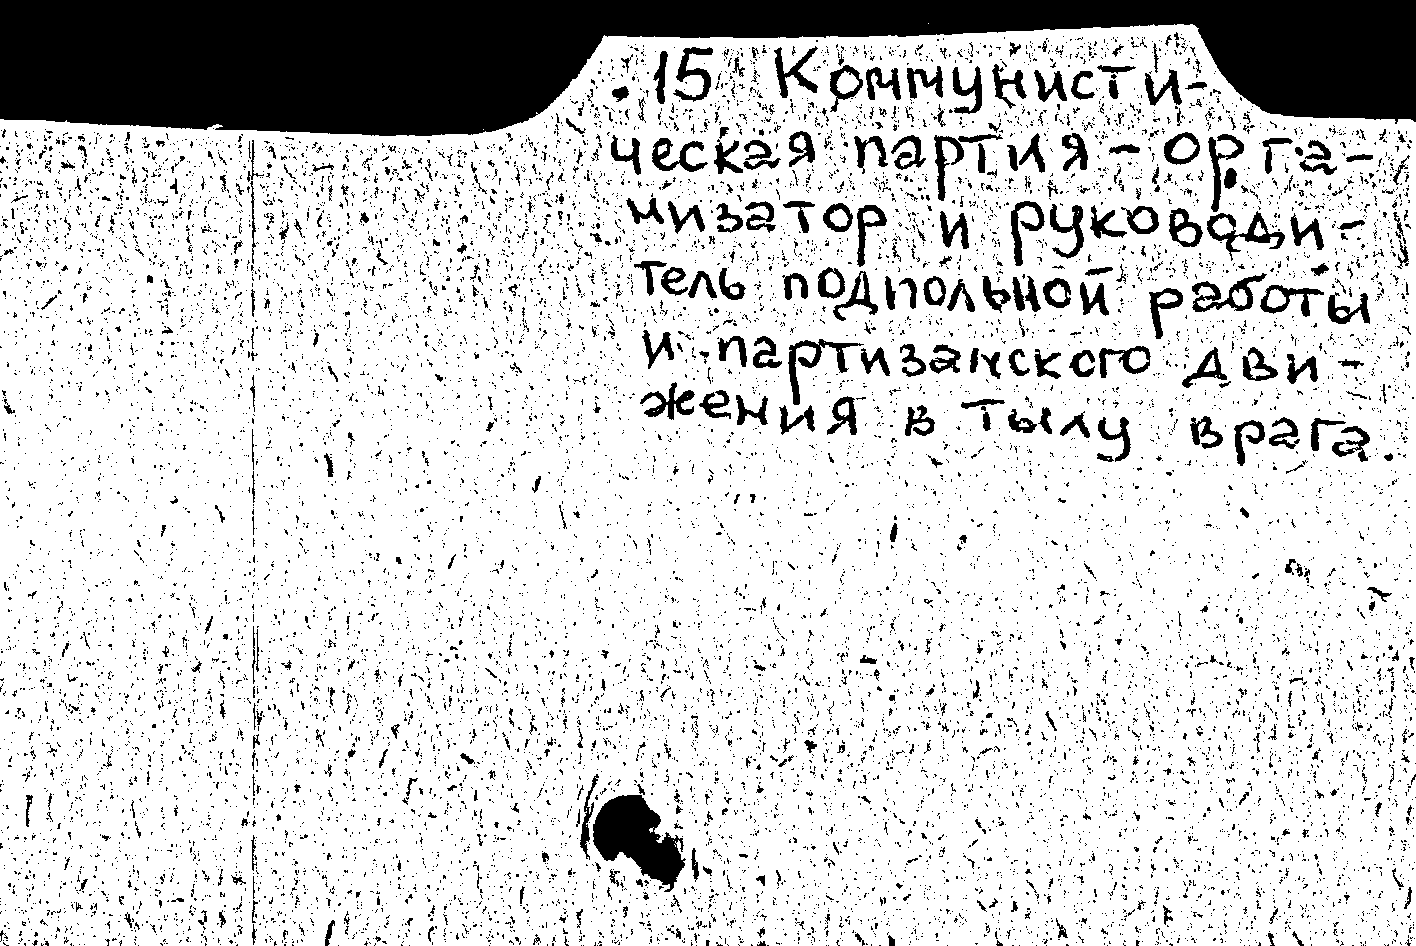 .15 Коммунисти-
ческая партия - орга-
низатор и руководи-
тель подпольной работы
и партизанского дви-
жения в тылу врага.